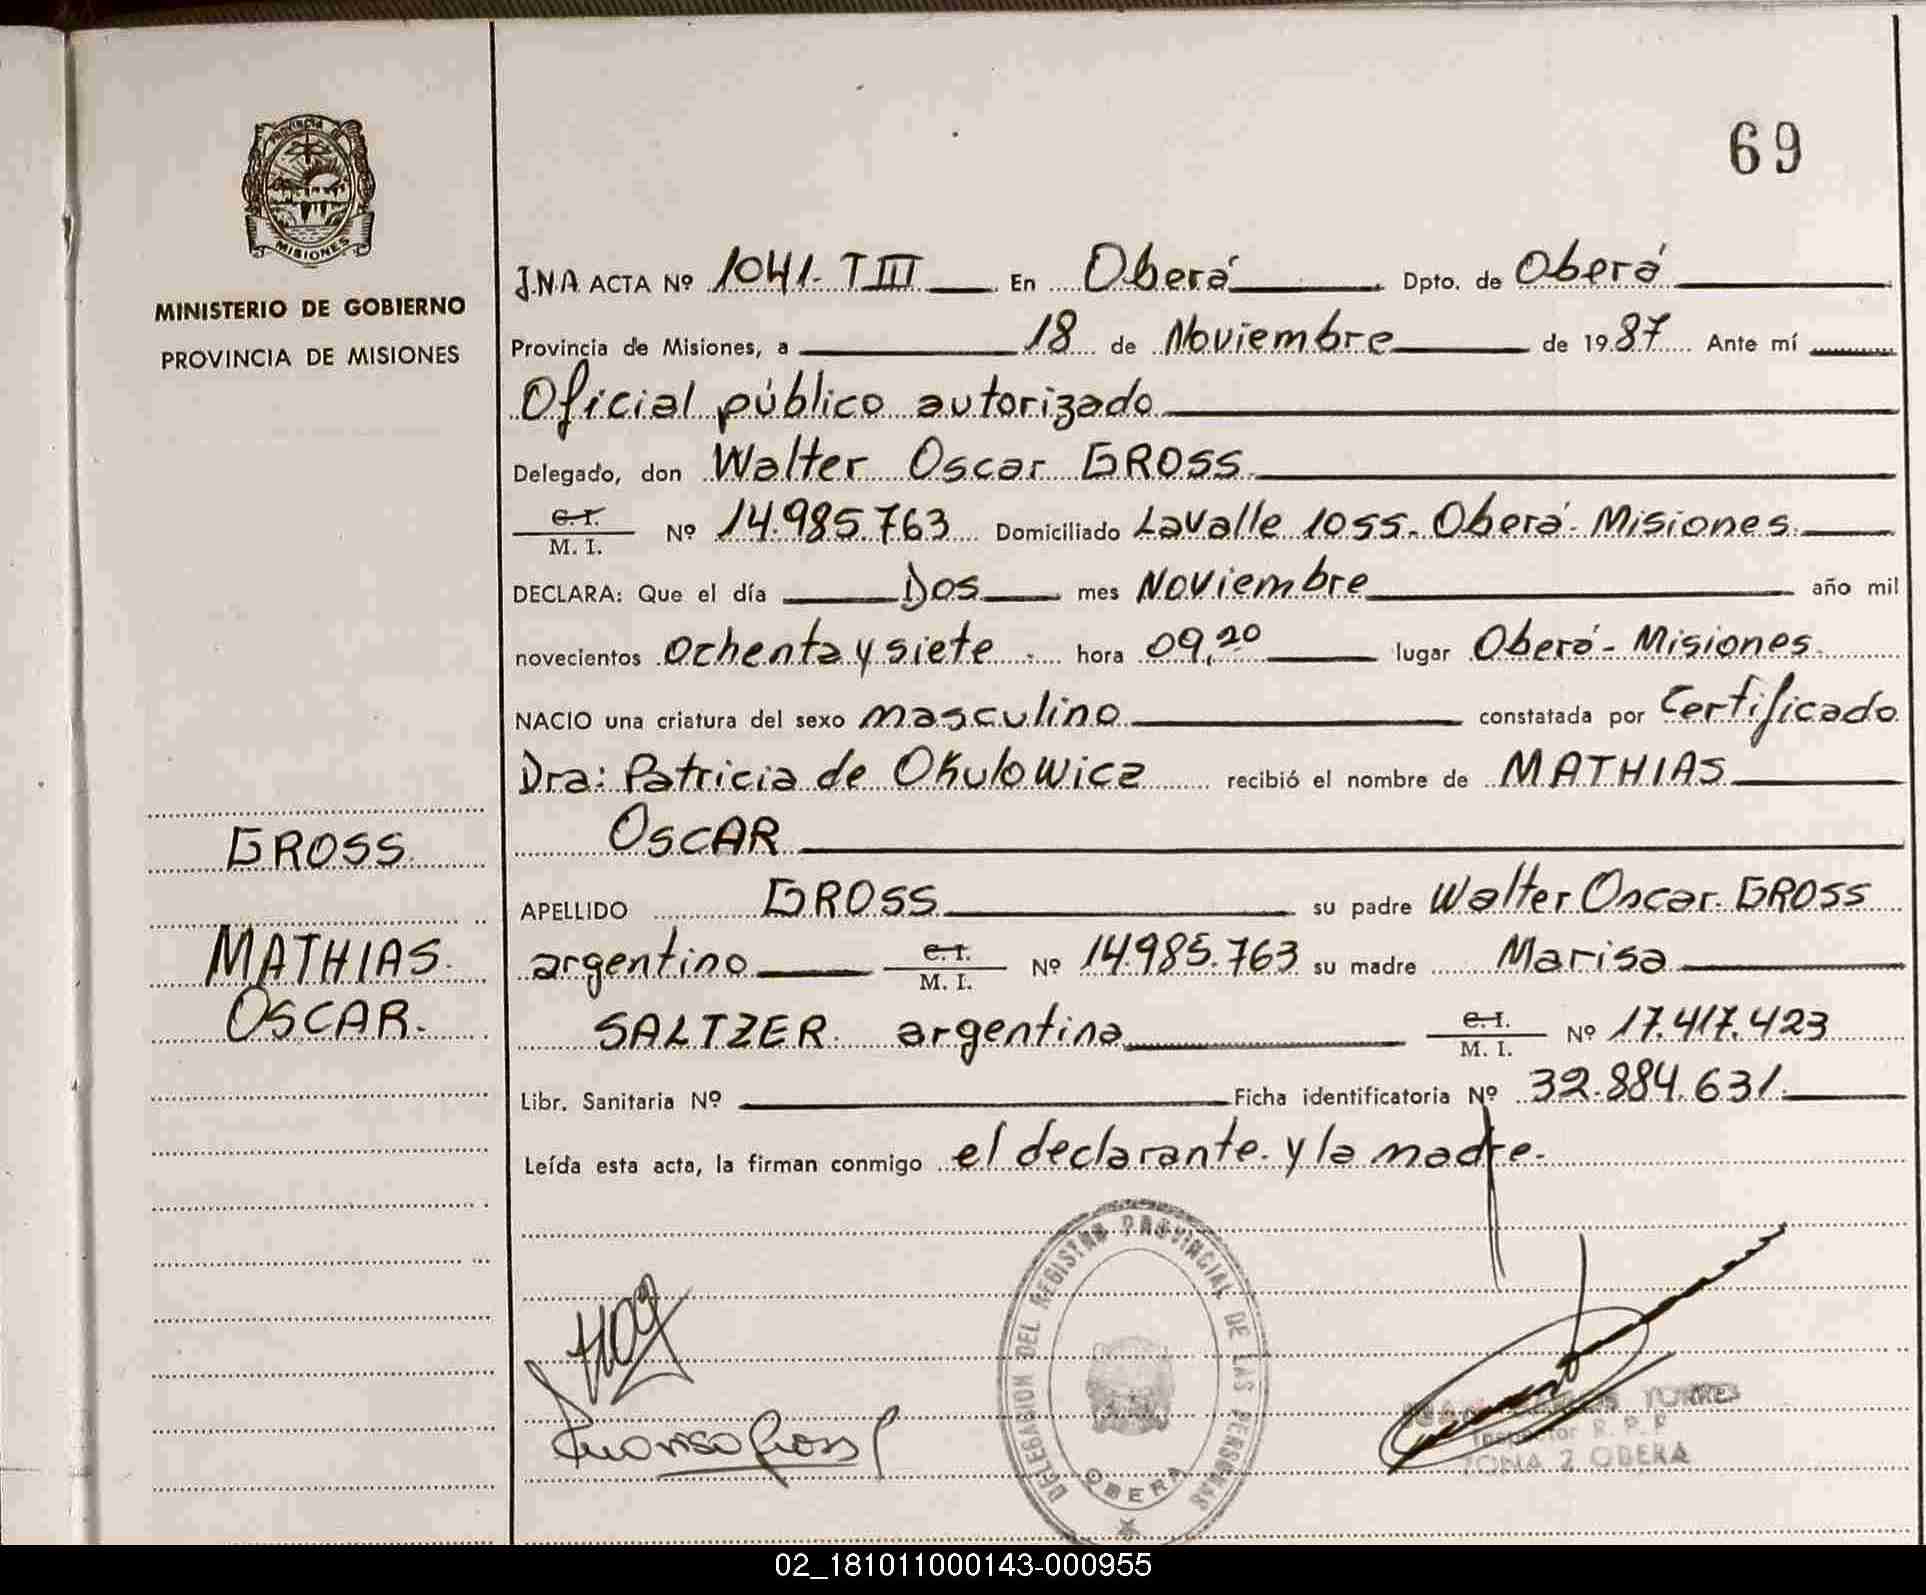 69
PROVINCIA DE
MISIONES
MINISTERIO DE GOBIERNO
PROVINCIA DE MISIONES
J.N.A ACTA Nº 1041- T III En Oberá Dpto. de Oberá
Provincia de Misiones, a 18 de Noviembre de 1987 Ante mí
Oficial público autorizado
Delegado, don Walter Oscar GROSS
C.I. M. I. Nº 14.985.763 Domiciliado Lavalle 1055- Oberá- Misiones
DECLARA: Que el día Dos mes Noviembre año mil
novecientos ochenta y siete hora 09,20 lugar Oberá- Misiones
NACIO una criatura del sexo masculino constatada por Certificado
Dra: Patricia de Okulowicz recibió el nombre de MATHIAS
OSCAR
GROSS
APELLIDO GROSS su padre Walter Oscar GROSS
MATHIAS.
argentino C.I. M. I. Nº 14.985.763 su madre Marisa
OSCAR.
SALTZER argentina C.I. M. I. Nº 17.417.423
Libr. Sanitaria Nº Ficha identificatoria Nº 32.884.631
Leída esta acta, la firman conmigo el declarante y la madre.
DELEGACION DEL REGISTRO PROVINCIAL DE LAS PERSONAS
OBERA
TORRES
Inspector R. P. P
ZONA 2 OBERA
02_181011000143-000955